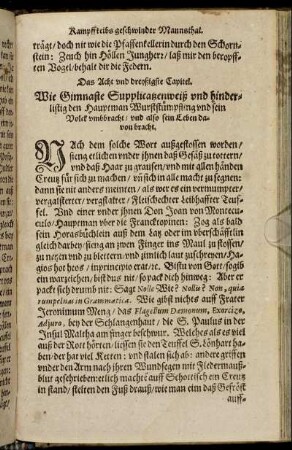 Kampfftreibs geschwinder Mannsthat.
trägt/ doch nit wie die Pfaffenkellerin durch den Schorn-
stein: Zeuch hin Höllen Jungherr/ laß mir den beropff-
ten Vogel/ behalt dir die Federn.
Das Acht und dreissigste Capitel.
Wie Gimnaste Supplicatzenweiß und hinder-
listig den Hauptman Wurststümpffing und sein
Volck umbbracht: und also sein Leben da-
von bracht.
NAch dem solche Wort außgestossen worden/
fieng etlichen under ihnen daß Gefäß zu lottern/
und daß Haar zu graussen/ und mit allen händen
Creutz für sich zu machen/ und sich in all macht zu segnen:
dann sie nit anders meinten/ als wer es ein vermumpter/
vergaisterter/ vergstalter/ Fleischechter Leibhaffter Teuf-
fel. Und einer under ihnen Don Joan von Montecu-
culo/ Hauptman uber die Franckropinen: Zog als bald
sein Horasbüchlein auß dem Latz oder im überschläffen
gleich darbey/ fieng an zwen Finger ins Maul zu stossen/
zu netzen und zu blettern/ und zimlich laut zuschreyen/ Ha-
gios hot heos/ inprincipio erat/ et. Bistu von Gott/ so gib
ein warzeichen/ bist dus nit/ so pack dich hinweg: Aber er
packt sich drumb nit: Sagt Nolle Wit? Nollu? Non, quia
rumpelnas in Grammatica. Wie gibst nichts auff Frater
Jeronimum Meng/ das Flagellum Dæmonum, Exorcizo,
Adjuro, bey der Schlangenhaut/ die S. Paulus in der
Insul Maltha am finger beschwur. Welches als es viel
auß der Rott hörten/ liessen sie den Teuffel S. Lönhart ha-
ben/ der hat viel Ketten: und stalen sich ab: andere griffen
under den Arm nach ihren Wundsegen mit Fledermauß-
blut geschrieben: etlich macht auff Schottisch ein Creutz
in stand/ stelten den Fuß drauß/ wie man eim daß Gefröst
auff-